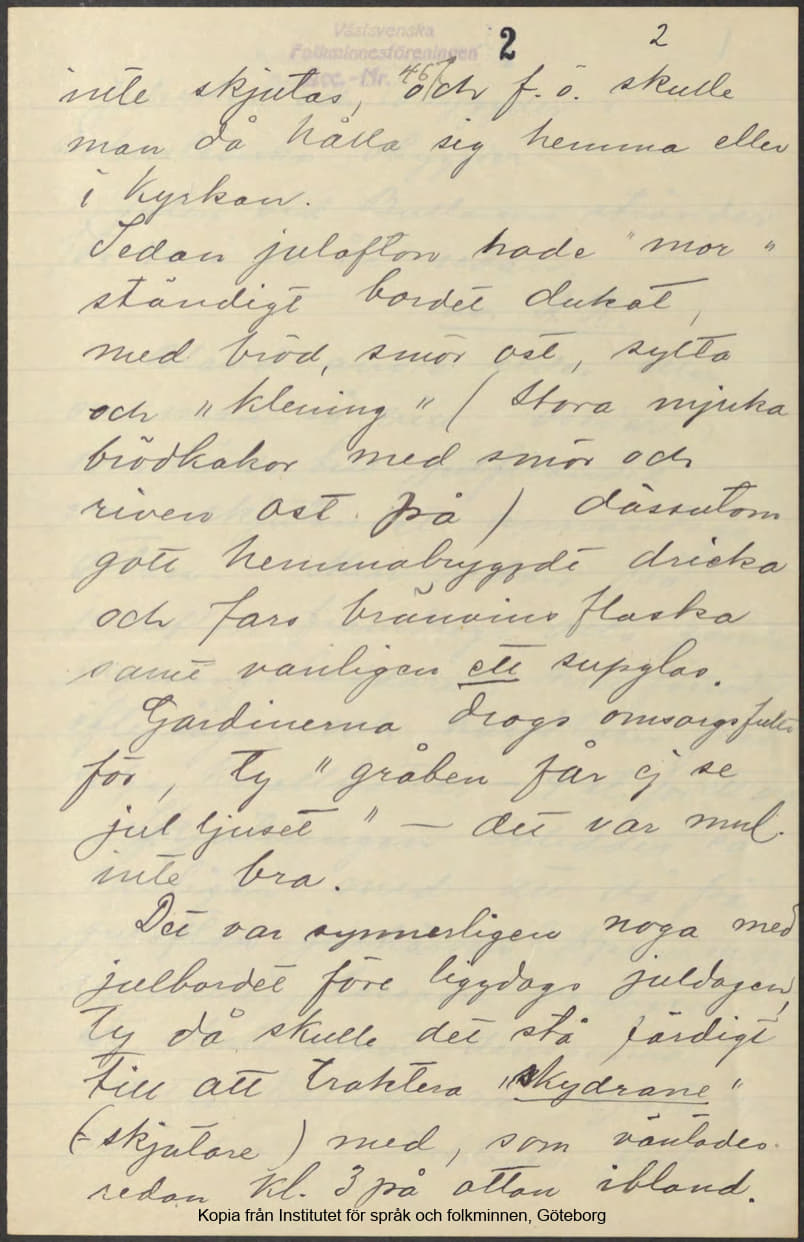 Västsvenska
Folkminnesföreningen
Acc.-Nr. 46
2 2
inte skjutas, och f. ö. skulle
man då hålla sig hemma eller
i kyrkan.
Sedan julafton hade "mor"
ständigt bordet dukat,
med bröd, smör ost, sylta
och "klening" (stora mjuka
brödkakor med smör och
riven ost på) dässutom
gott hemmabryggdt dricka
och fars brännvinsflaska
samt vanligen ett supglas.
Gardinerna drogs omsorgsfullt
för, ty "gråben får ej se
jul ljuset" – det var
inte bra.
Det var synnerligen noga med
julbordet före liggdags juldagen,
ty då skulle det stå färdigt
till att traktera "skydrane"
(= skjutare) med, som väntades
redan kl. 3 på ottan ibland.
Kopia från Institutet för språk och folkminnen, Göteborg